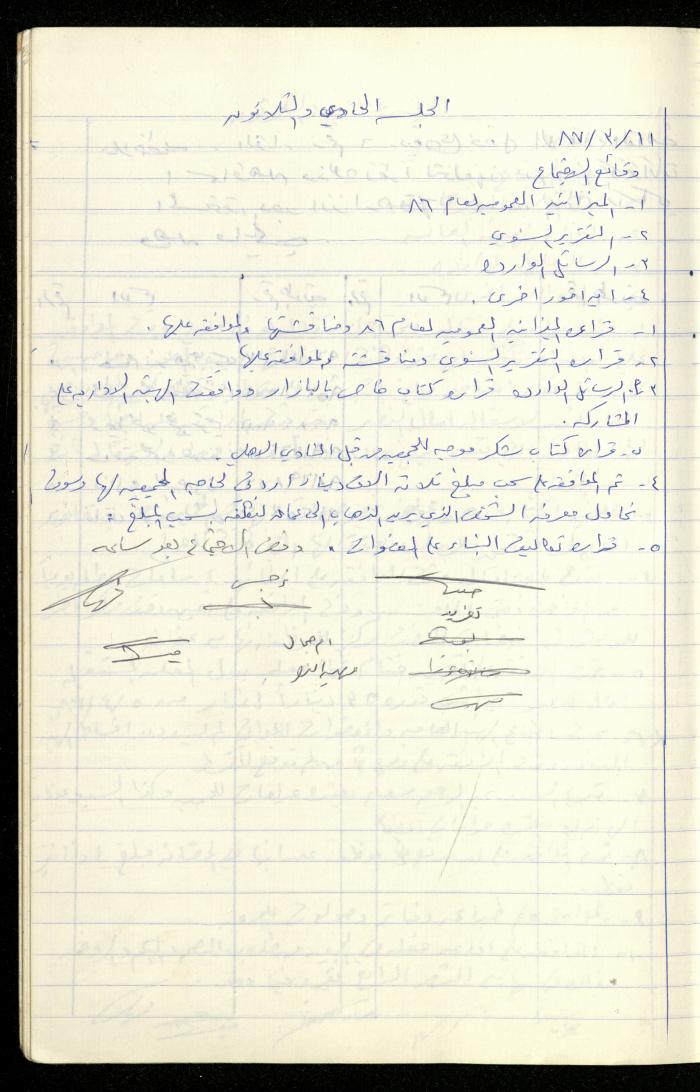 الجلسه الحادي والثلاثون
٨٧/٣/١١
وقائع الاجتماع
١- الميزانيه العموميه لعام ٨٦
٢- التقرير السنوي
٣- الرسائل الوارده
٤- ايه امور اخرى .
١- قراءه الميزانيه العموميه لعام ٨٦ ومناقشتها والموافقه عليها .
٢- قراءه التقرير السنوي ومناقشته والموافقه عليها
٣- الرسائل الوارده قراءه كتاب خاص بالبازار ووافقت الهيئه الاداريه على
المشاركه .
ب- قراءه كتاب شكر موجه للجمعيه من قبل النادي الاهلي .
٤- تم الموافقه على سحب مبلغ ثلاثه الاف دينار اردني لحاجه الجمعيه لها وسوف
نحاول معرفه الشخص الذي يريد الذهاب الى عمان لنكلفه بسحب المبلغ .
٥- قراءه تعاليف البناء على العضوات . وفض الاجتماع بعد ساعه
نرجس
تغريد
ام جمال